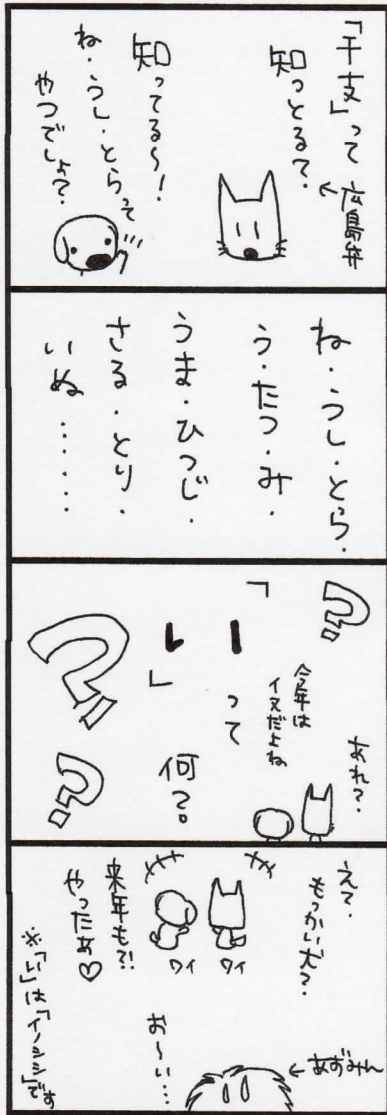 「干支」って
知っとる？
←広島弁
知ってる〜！
ね・うし・とらって
やつでしょ？
ね・うし・とら・
う・たつ・み・
うま・ひつじ・
さる・とり・
いぬ・・・・・・
？
あれ？
今年は
イヌだよね
「い」
って
何？。
？
？
えて
もっかい犬？
ワイ
ワイ
来年も？！
やったぁ♡
←あずみん
お〜い…
※「い」は「イノシシ」です